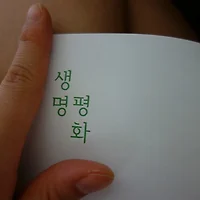 생
명평
화